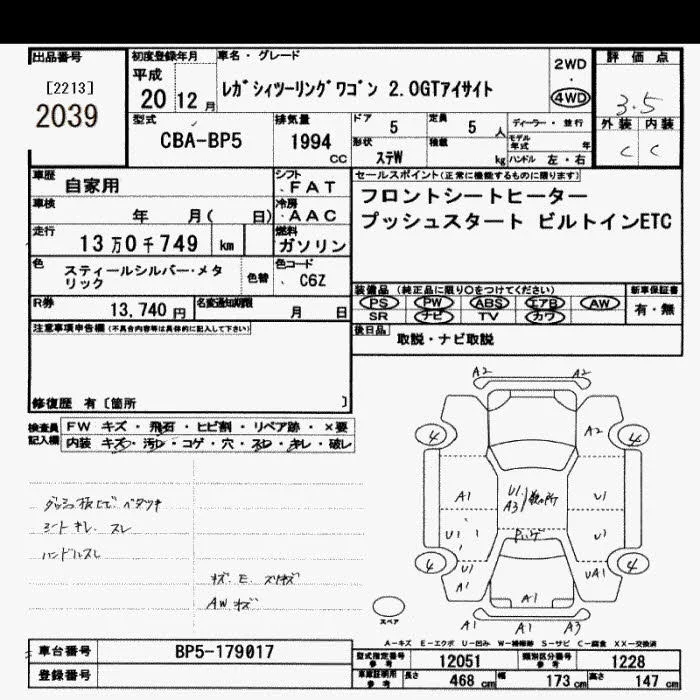 出品番号 初度登録年月 車名・グレード 2WD ・ 4WD 評価点
[2213] 平成 20 12月 レガシィツーリングワゴン 2.0GTアイサイト 3.5
2039 型式 排気量 ドア 5 定員 5 人 ディーラー・並行 外装 内装
CBA-BP5 1994 CC 形状 ステW 積載 kg モデル年式 年 ハンドル 左・右 C C
車歴 自家用 シフト FAT セールスポイント(正常に機能するものに限ります)
車検 年 月( 日) 冷房 AAC フロントシートヒーター
走行 13万0千749 km 燃料 ガソリン プッシュスタート ビルトインETC
色 スティールシルバー・メタリック 色替 色コード C6Z
装備品 (純正品に限り○をつけてください) 新車保証書
PS PW ABS エアB AW 有・無
R券 13,740円 名変通知期限 月 日 SR ナビ TV カワ
注意事項申告欄 (不具合内容等は具体的に記入して下さい) 後日品 取説・ナビ取説
修復歴 有〔箇所 〕
検査員記入欄 FW キズ・飛石・ヒビ割・リペア跡・×要
内装 キズ・汚レ・コゲ・穴・スレ・キレ・破レ
A2 A2
4 A2 4
A1 U1 A3 U1
ダッシュ板上でベタツキ
シートキレ スレ U1 U1
ハンドルスレ
4 U1 A1 UA1 4
キズ. E. スリキズ A1
AWキズ スペア U1 A1 A3
A-キズ E-エクボ U-凹み W-補修跡 S-サビ C-腐食 XX-交換済
車台番号 BP5-179017 型式指定番号 参考 12051 類別区分番号 参考 1228
登録番号 車庫証明用 参考 長さ 468 cm 幅 173 cm 高さ 147 cm